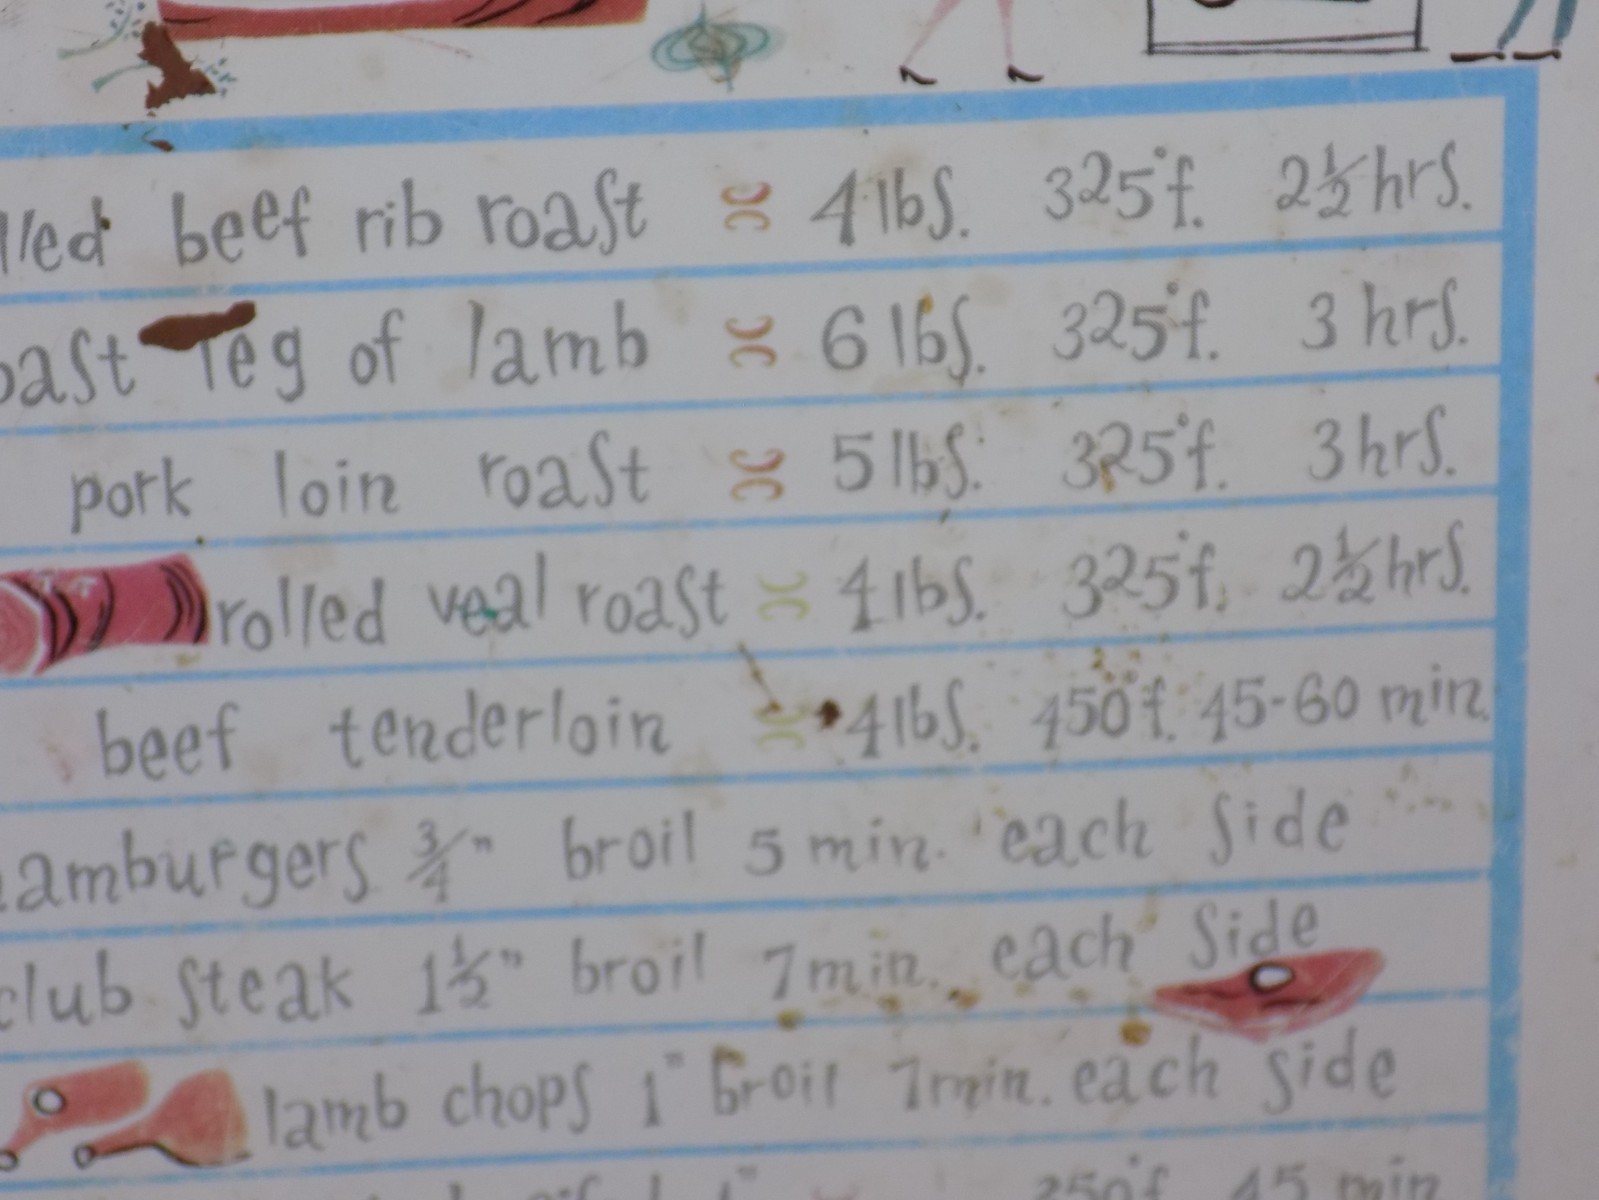 lled beef rib roast 4 lbs. 325°f. 2½ hrs.
oast leg of lamb 6 lbs. 325°f. 3 hrs.
pork loin roast 5 lbs. 325°f. 3 hrs.
rolled veal roast 4 lbs. 325°f. 2½ hrs.
beef tenderloin 4 lbs. 450°f. 45-60 min.
hamburgers ¾" broil 5 min. each side
club steak 1½" broil 7 min. each side
lamb chops 1" broil 7 min. each side
45 min